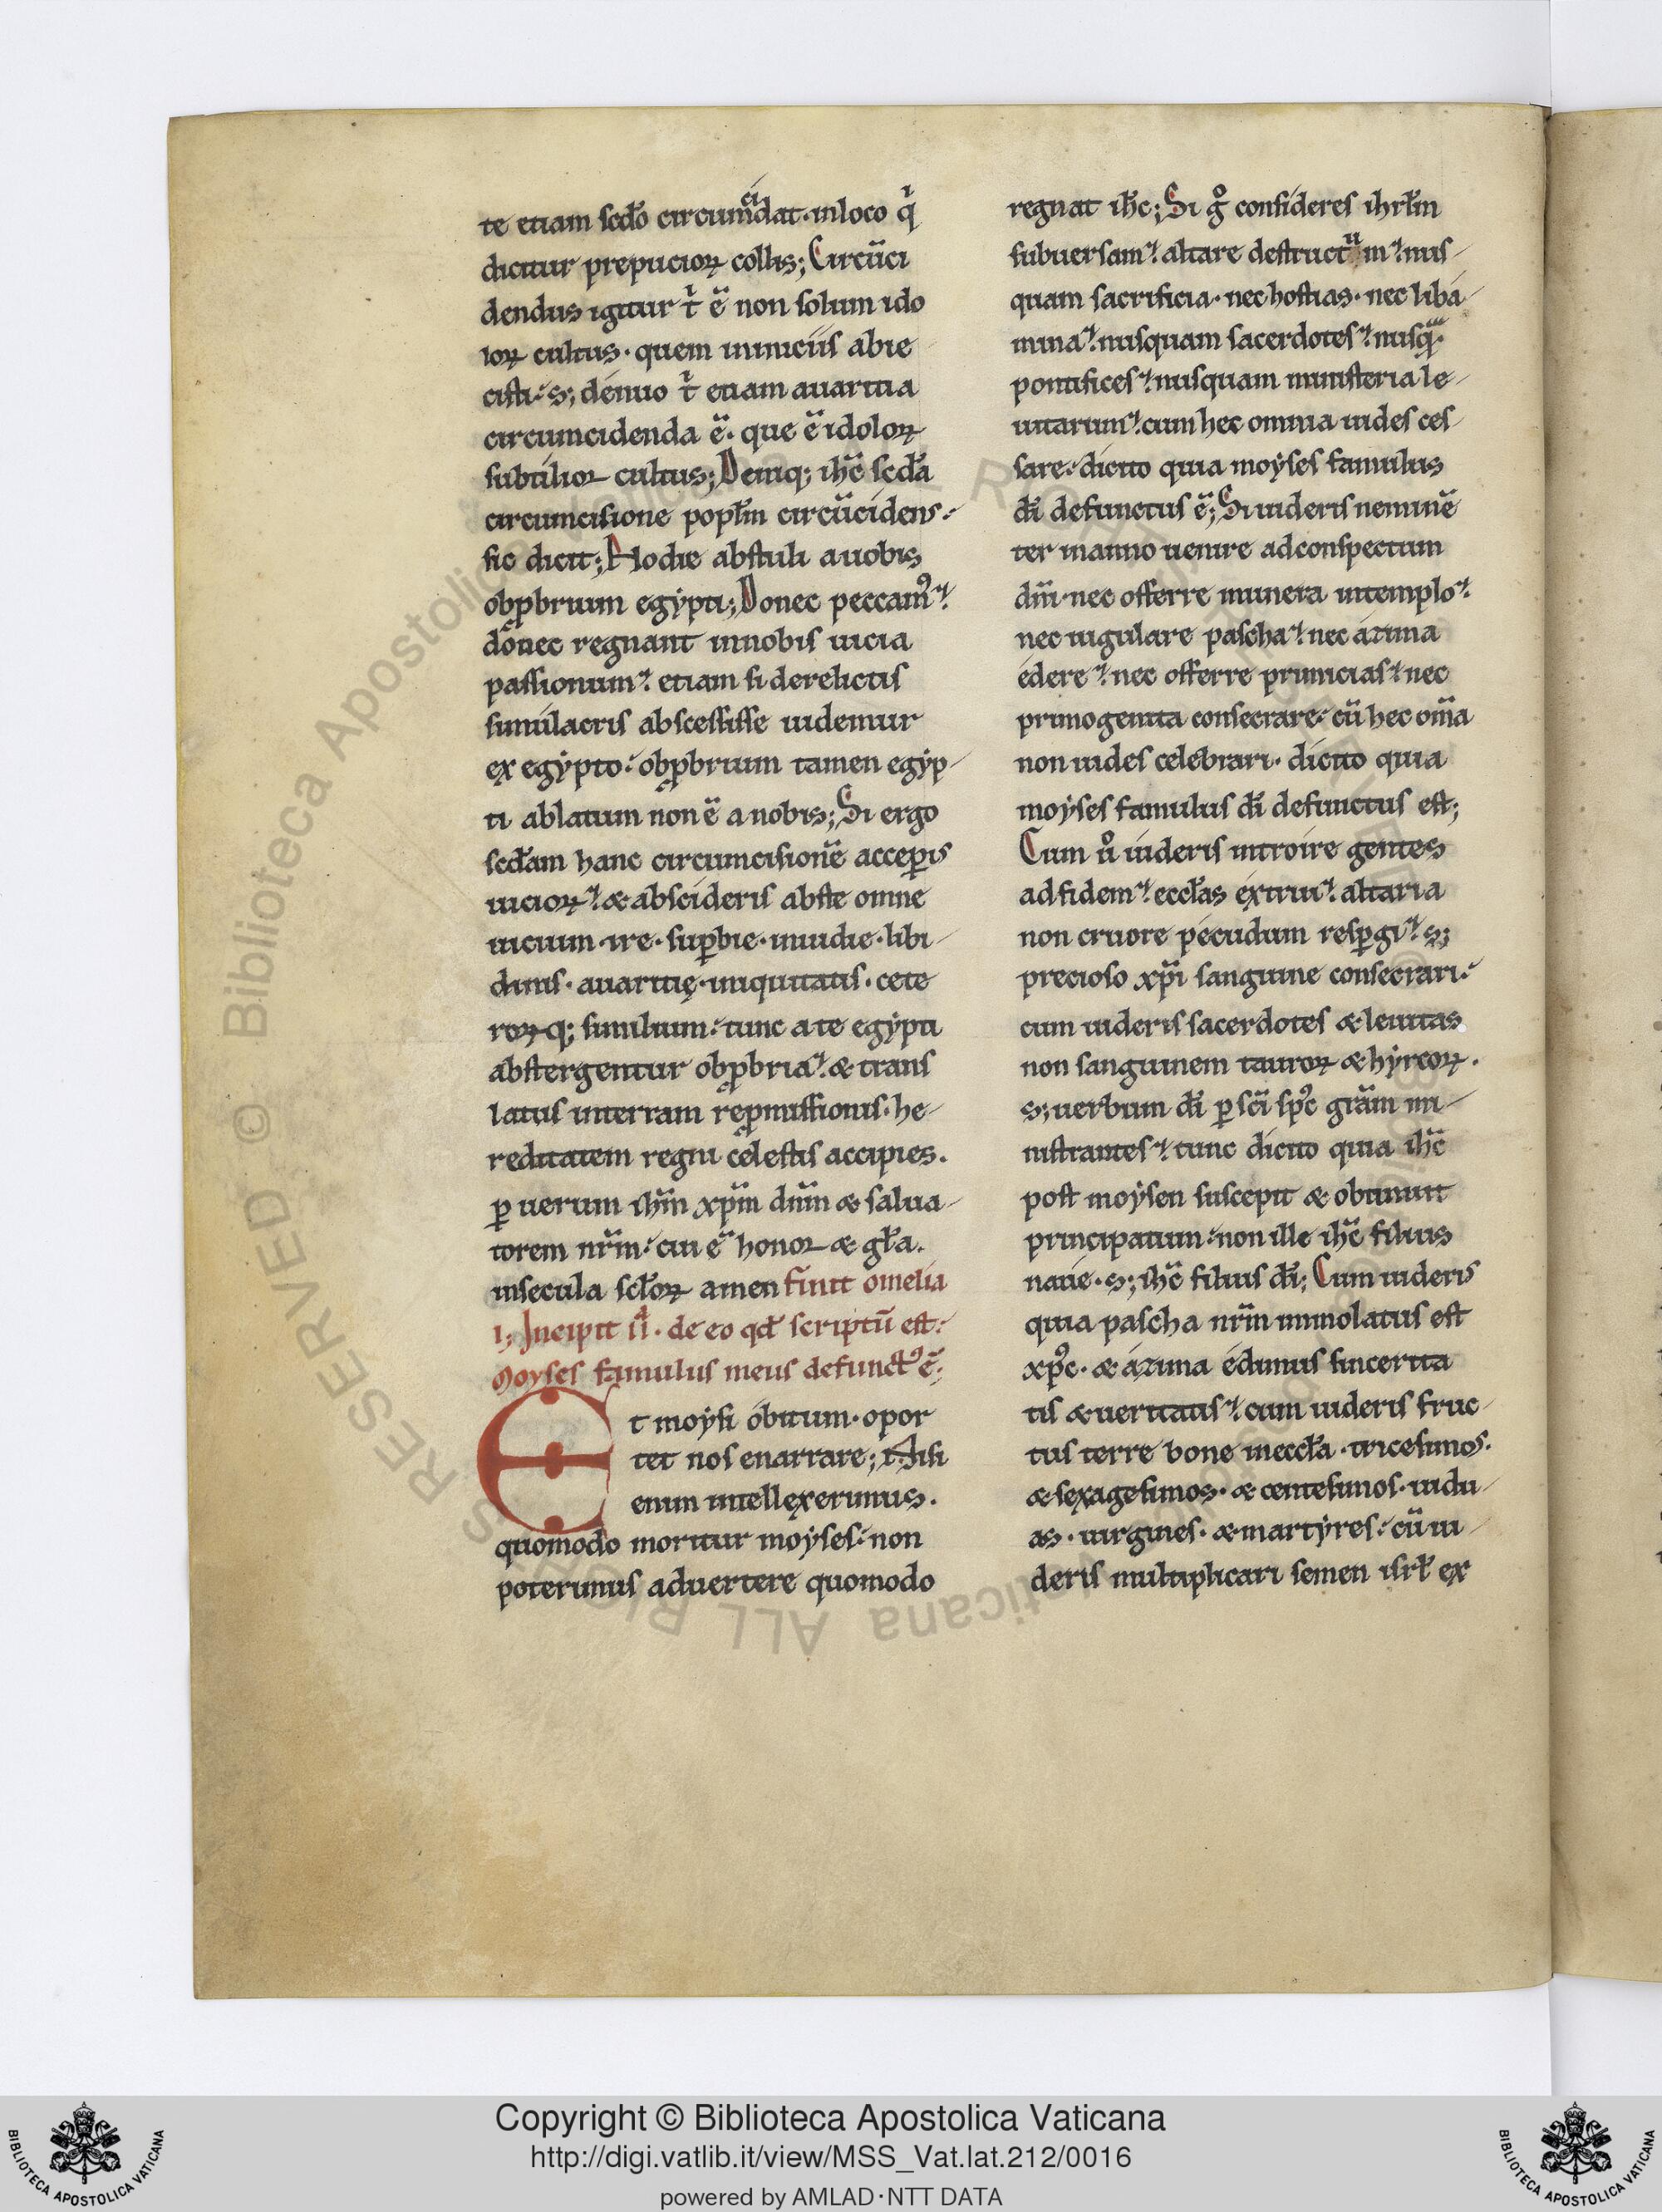 te etiam scd̄o circum̄cidat · inloco q̇
dicitur prepucioꝝ collis; Circūci
dendus igitur t̄ ē non solum ido
loꝝ cultus · quem inmiciis abie
cisti · s; dénuo t̄ etiam auaritia
circumcidenda ē · que ē idoloꝝ
subtilior cultus; Deniq; ih̄c scd̄a
circumcisione popl̄m circūcidens ·
sic dicit; Hodie abstuli auobis
obꝓbrium egẏpti; Donec peccamꝰ ·
donec regnant innobis uicia
passionum · etiam si derelictis
simulacris abscessisse uidemur
ex egẏpto · obꝓbrium tamen egẏp-
ti ablatum non ē a nobis; Si ergo
scd̄am hanc circumcisionē acceꝑis
uicioꝝ · & abscideris abste omne
uicium · ire · suꝑbie · inuidie · libi-
dinis · auaritię · iniquitatis · cete
roꝝq; similium · tunc a te egẏpti
abstergentur obꝓbria · & trans
latus interram reꝓmissionis · he-
reditatem regni celestis accipies .
ꝑ uerum ihm̄ xpm̄ dnm̄ & salua-
torem nrm̄ · cui ē honor & gl̄a .
insecula scl̄oꝝ amen finit omelia
i; Incipit ii · de eo qd̄ scriptū est ·
Moyses famulus meus defunctꝰ ē;
Et moẏsi óbitum · opor
tet nos enarrare; Nisi
enim intellęxerimus .
quomodo moritur moẏses · non
poterimus aduertere quomodo
regnat ih̄c; Si g̊ consideres ihrl̄m
subuersam · altare destructum · nus-
quam sacrificia · nec hostias · nec libá-
mina · nusquam sacerdotes · nusq̄ ·
pontifices · nusquam ministeria le-
uitarum · cum hec omnia uides ces-
sare · dicito quia moẏses famulus
dī defunctus ē; Si uideris neminē
ter in anno uenire adconspectum
dn̄i · nec offerre munera intemplo ·
nec iugulare pascha · nec ázima
édere · nec offerre primicias · nec
primogenita consecrare · cū hec om̄a
non uides celebrari · dicito quia
moẏses famulus dī defunctus est;
Cum ů uideris introire gentes
ad fidem · eccl̄as éxtrui · altaria
non cruore pécudum resꝑgi · s;
precioso xp̄i sanguine consecrari ·
cum uideris sacerdotes & leuitas
non sanguinem tauroꝝ & hẏrcoꝝ .
s; uerbum dī ꝑ sc̄i sp̄c grām mi-
nistrantes · tunc dicito quia ih̄c
post moẏsen suscepit & obtinuit
principatum · non ille ih̄c filius
naue · s; ih̄c filius dī; Cum uideris
quia pascha nrm̄ immolatus est
xp̄c · & ázima édimus sincerita
tis & ueritatis · cum uideris fruc-
tus terre bone ineccl̄a · tricesimos ·
& sexagesimos · & centesimos · uidu-
as · uirgines · & martẏres · cū ui-
deris multiplicari semen isrl̄ ex
Copyright © Biblioteca Apostolica Vaticana
http://digi.vatlib.it/view/MSS_Vat.lat.212/0016
powered by AMLAD·NTT DATA
BIBLIOTECA APOSTOLICA VATICANA
BIBLIOTECA APOSTOLICA VATICANA